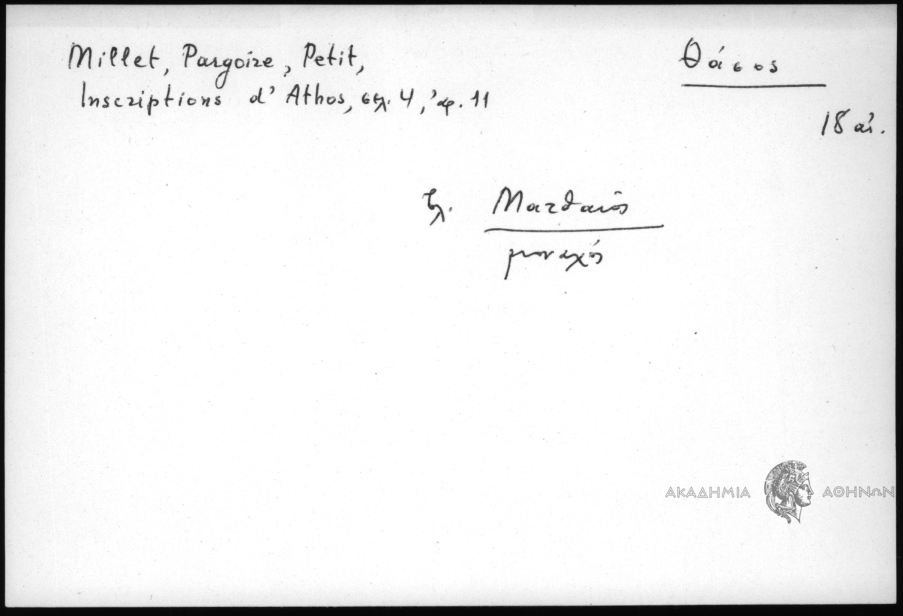 Millet, Pargoire, Petit,
Inscriptions d' Athos, σελ. 4, ἀρ. 11
Θάσος
18 αἰ.
βλ. Ματθαῖος
μοναχός
ΑΚΑΔΗΜΙΑ ΑΘΗΝΩΝ